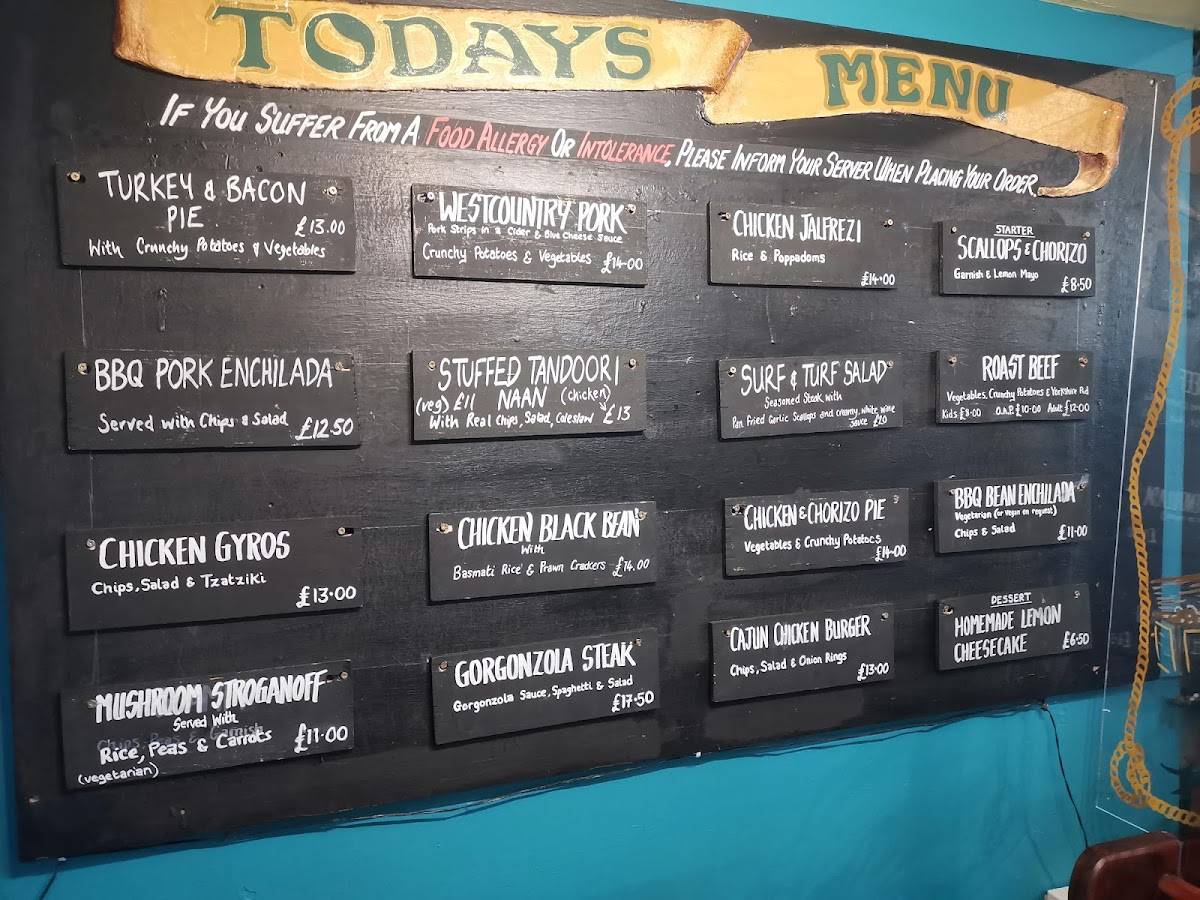 TODAYS MENU
IF YOU SUFFER FROM A FOOD ALLERGY OR INTOLERANCE, PLEASE INFORM YOUR SERVER WHEN PLACING YOUR ORDER
TURKEY & BACON
PIE £13.00
With Crunchy Potatoes & Vegetables
WESTCOUNTRY PORK
Pork Strips in a Cider & Blue Cheese Sauce
Crunchy Potatoes & Vegetables £14-00
CHICKEN JALFREZI
Rice & Poppadoms
£14-00
STARTER
SCALLOPS & CHORIZO
Garnish & Lemon Mayo
£8.50
BBQ PORK ENCHILADA
Served with Chips & Salad £12.50
STUFFED TANDOORI
(veg) £11 NAAN (chicken)
With Real Chips, Salad, Coleslaw £13
SURF & TURF SALAD
Seasoned Steak with
Pan Fried Garlic Scallops and creamy white wine
Sauce £20
ROAST BEEF
Vegetables, Crunchy Potatoes & Yorkshire Pud
Kids £8-00 O.A.P £10-00 Adult £12-00
CHICKEN GYROS
Chips, Salad & Tzatziki
£13.00
CHICKEN BLACK BEAN
With
Basmati Rice & Prawn Crackers £14.00
CHICKEN & CHORIZO PIE
Vegetables & Crunchy Potatoes
£14-00
BBQ BEAN ENCHILADA
Vegetarian (or vegan on request)
Chips & Salad £11-00
MUSHROOM STROGANOFF
Served With
Rice, Peas & Carrots £11.00
(vegetarian)
GORGONZOLA STEAK
Gorgonzola Sauce, Spaghetti & Salad
£17.50
CAJUN CHICKEN BURGER
Chips, Salad & Onion Rings
£13-00
DESSERT
HOMEMADE LEMON
CHEESECAKE £6.50